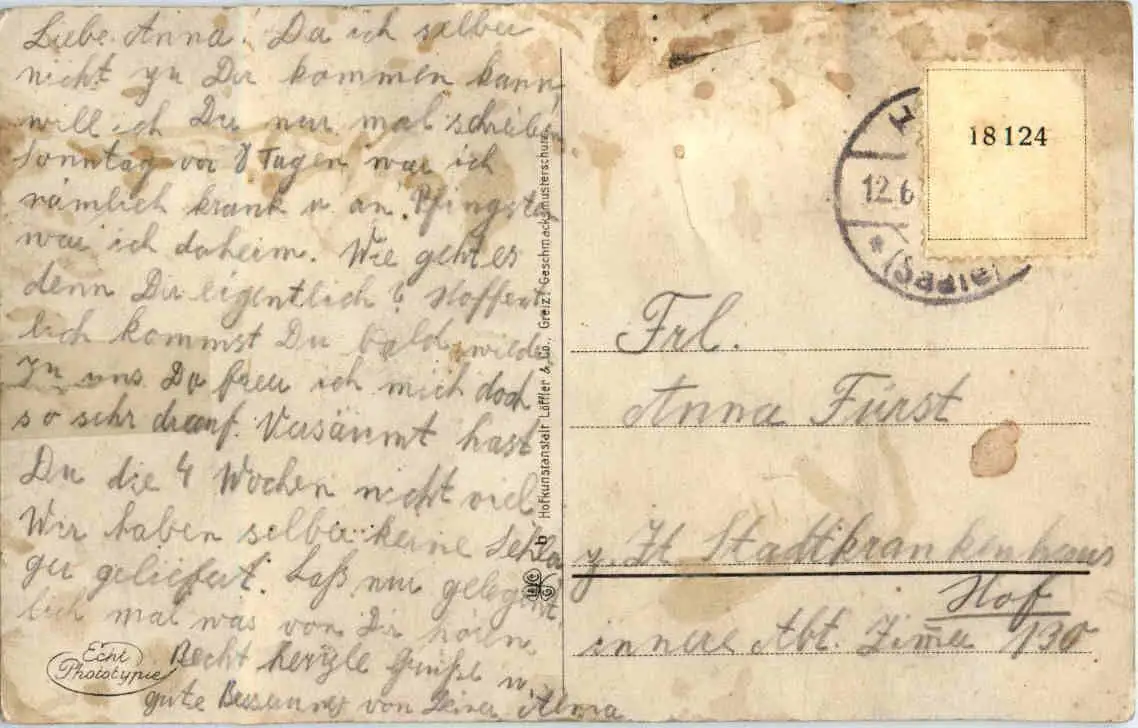 Liebe Anna! Da ich selber
nicht zu Dir kommen kann,
will ich Dir nur mal schreiben
Sonntag vor 8 Tagen war ich
nämlich krank u. an Pfingsten
war ich daheim. Wie geht es
denn Dir eigentlich? Hoffent
lich kommst Du bald wieder
zu uns. Da freu ich mich doch
so sehr drauf. Versäumt hast
Du die 4 Wochen nicht viel
Wir haben selber keine Schla
ger geliefert. Laß nur gelegent
lich mal was von Dir hören.
Recht herzle Grüße u.
gute Besserung von Deiner Alma
Echt
Phototypie
b Hofkunstanstalt Löffler & Co., Greiz! Geschmacksmusterschutz
18 124
12.6
(Saale)
Frl.
Anna Fürst
z. Zt Stadtkrankenhaus
Hof
innere Abt. Zimmer 130